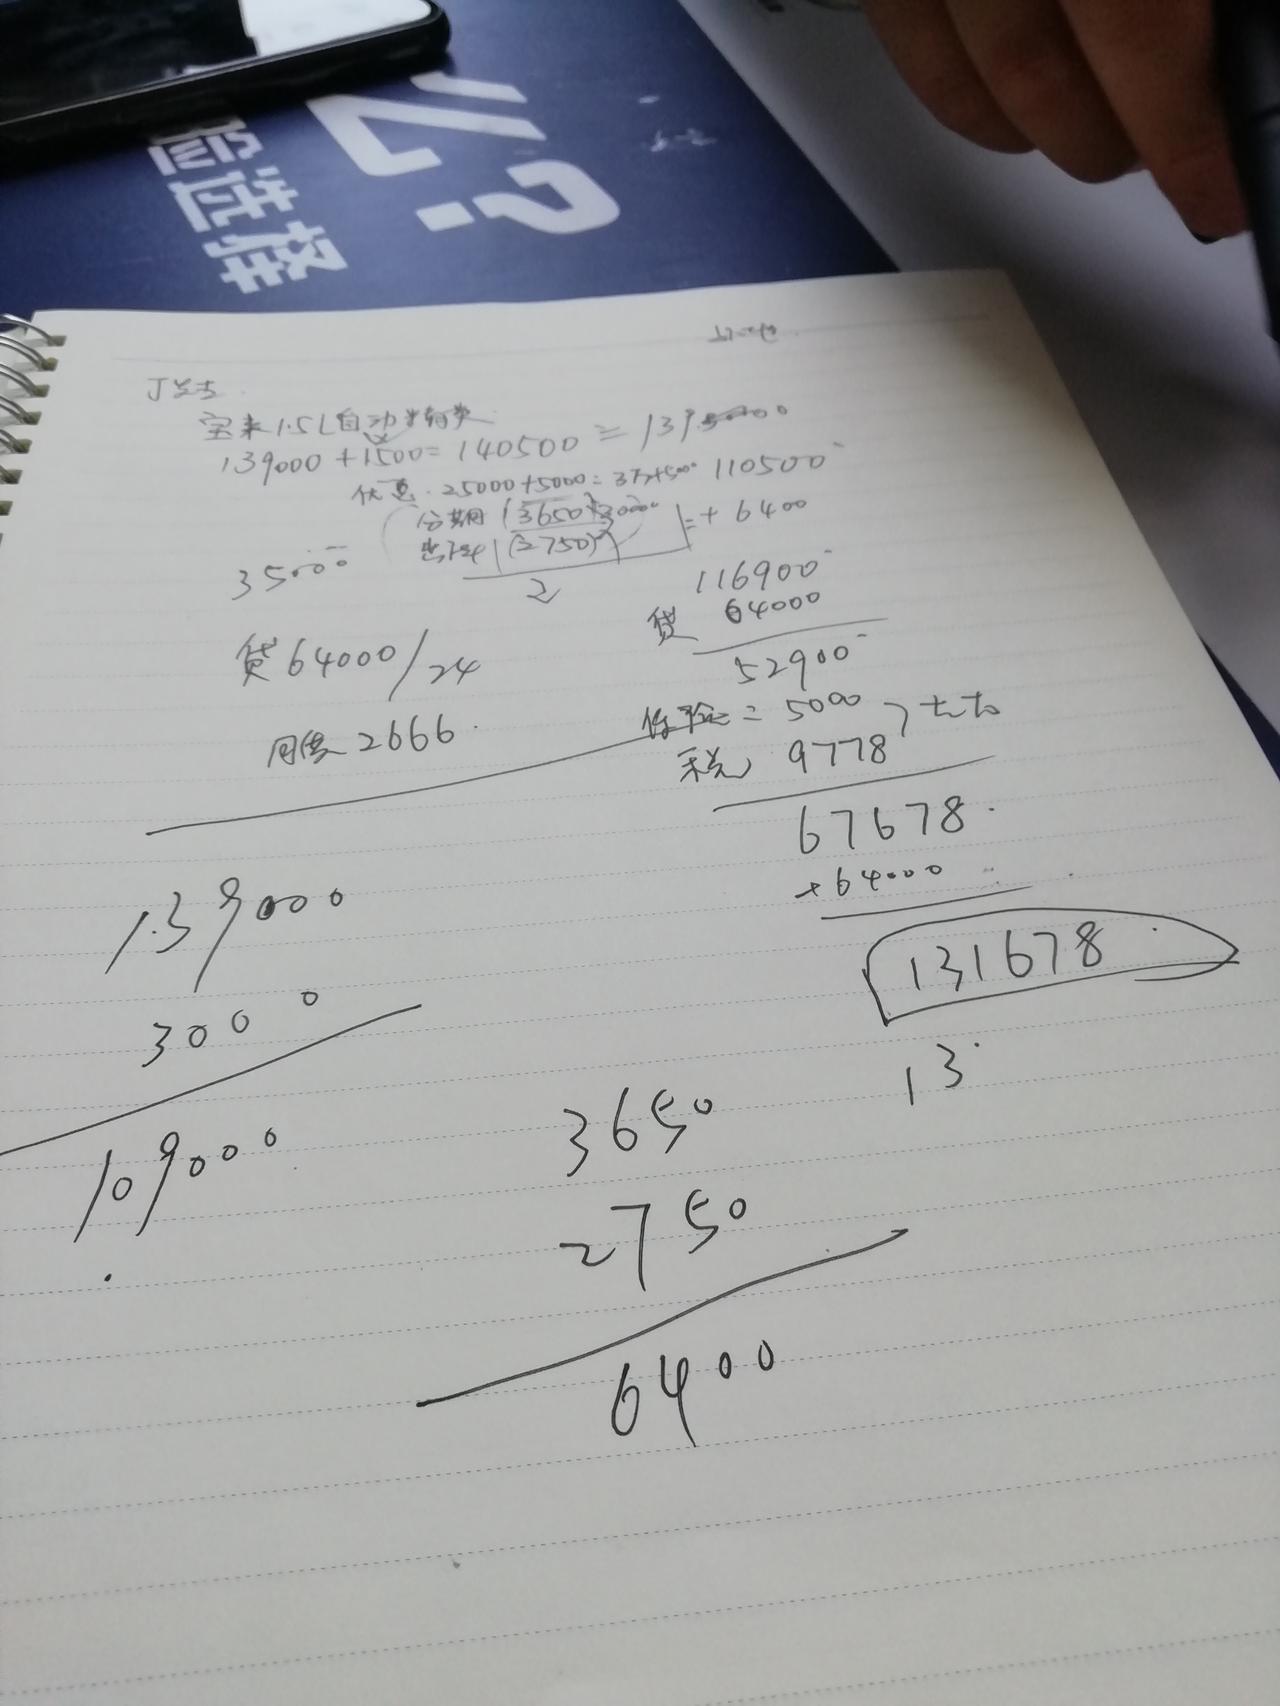 亿?
验选择
宝来1.5L自动
139000+1500=140500 = 139
优惠. 25000+5000= 110500
分期 (3650)
(2750) =+6400
35000
2
116900
贷 64000
52900
贷64000/24
月供2666.
保险=5000
税 9778
67678.
+64000
131678
13
139000
30000
109000
3650
2750
6400